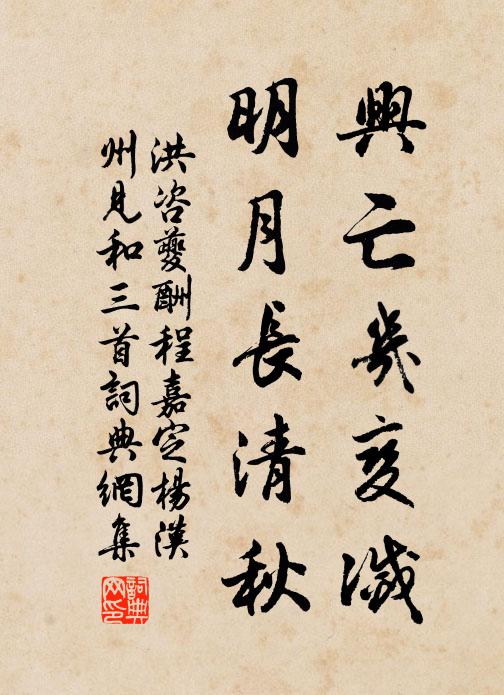 興亡幾變滅
明月長清秋
洪咨夔酬程嘉定楊漢
州見和三首詞典網集
詞典網印